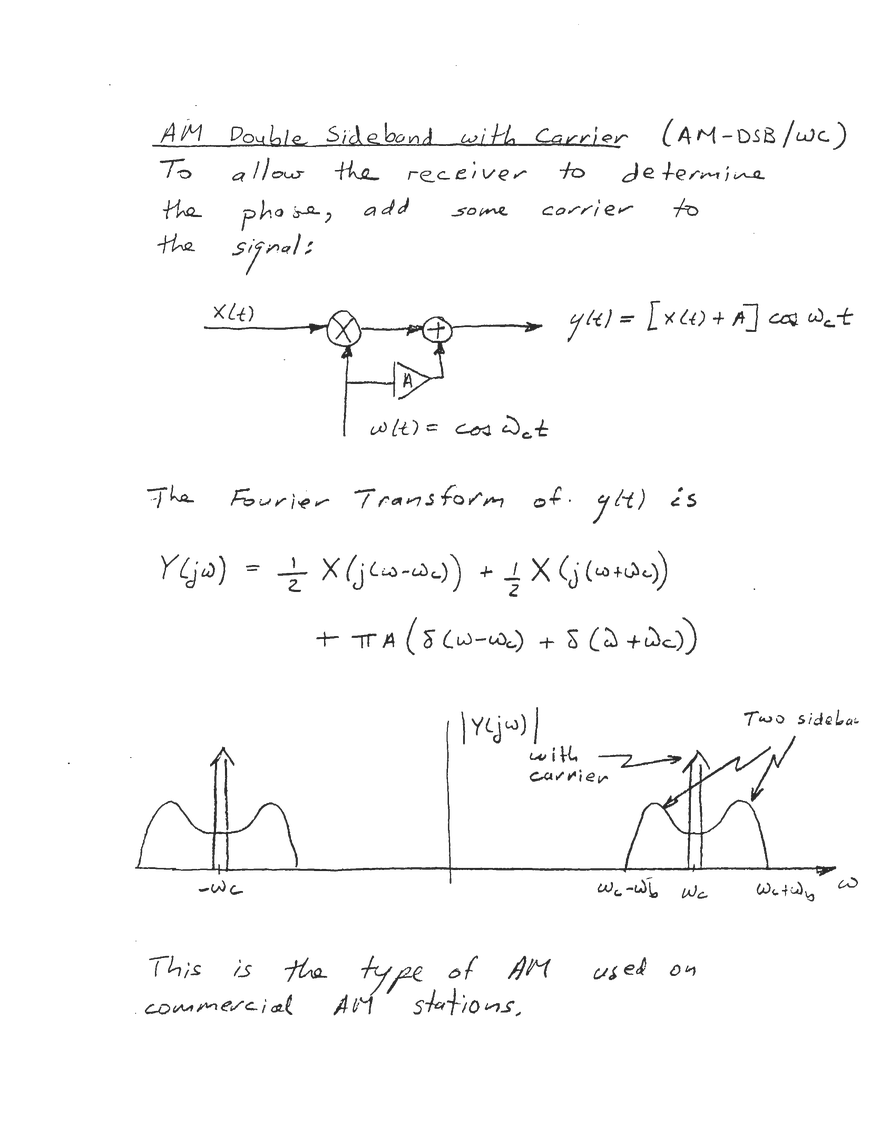 AM Double Sideband with Carrier (AM-DSB/WC)
To allow the receiver to determine
the phase, add some carrier to
the signal:
x(t)
X
+
y(t) = [x(t) + A] cos ω_c t
A
w(t) = cos ω_c t
The Fourier Transform of y(t) is
Y(jω) = 1/2 X(j(ω-ω_c)) + 1/2 X(j(ω+ω_c))
+ πA(δ(ω-ω_c) + δ(ω+ω_c))
|Y(jω)|
Two sideba
with
carrier
-ω_c
ω_c-ω_b
ω_c
ω_c+ω_b
ω
This is the type of AM used on
commercial AM stations.